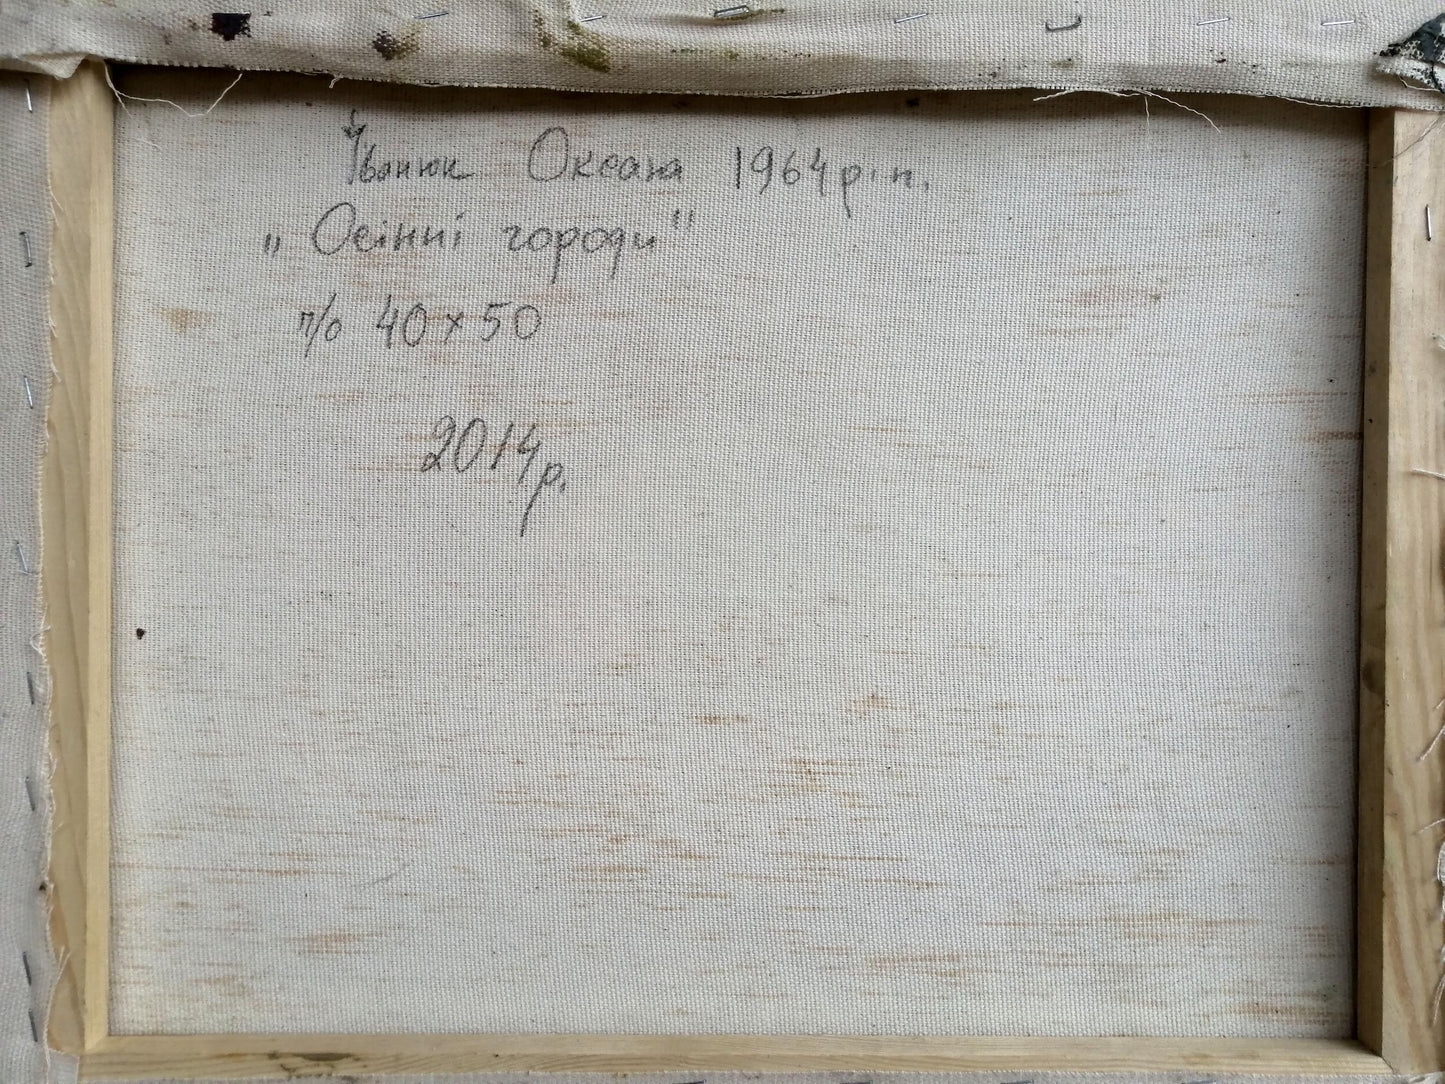 Іванюк Оксана 1964 р.н.
„Осінні городи"
п/о 40×50
2014р.